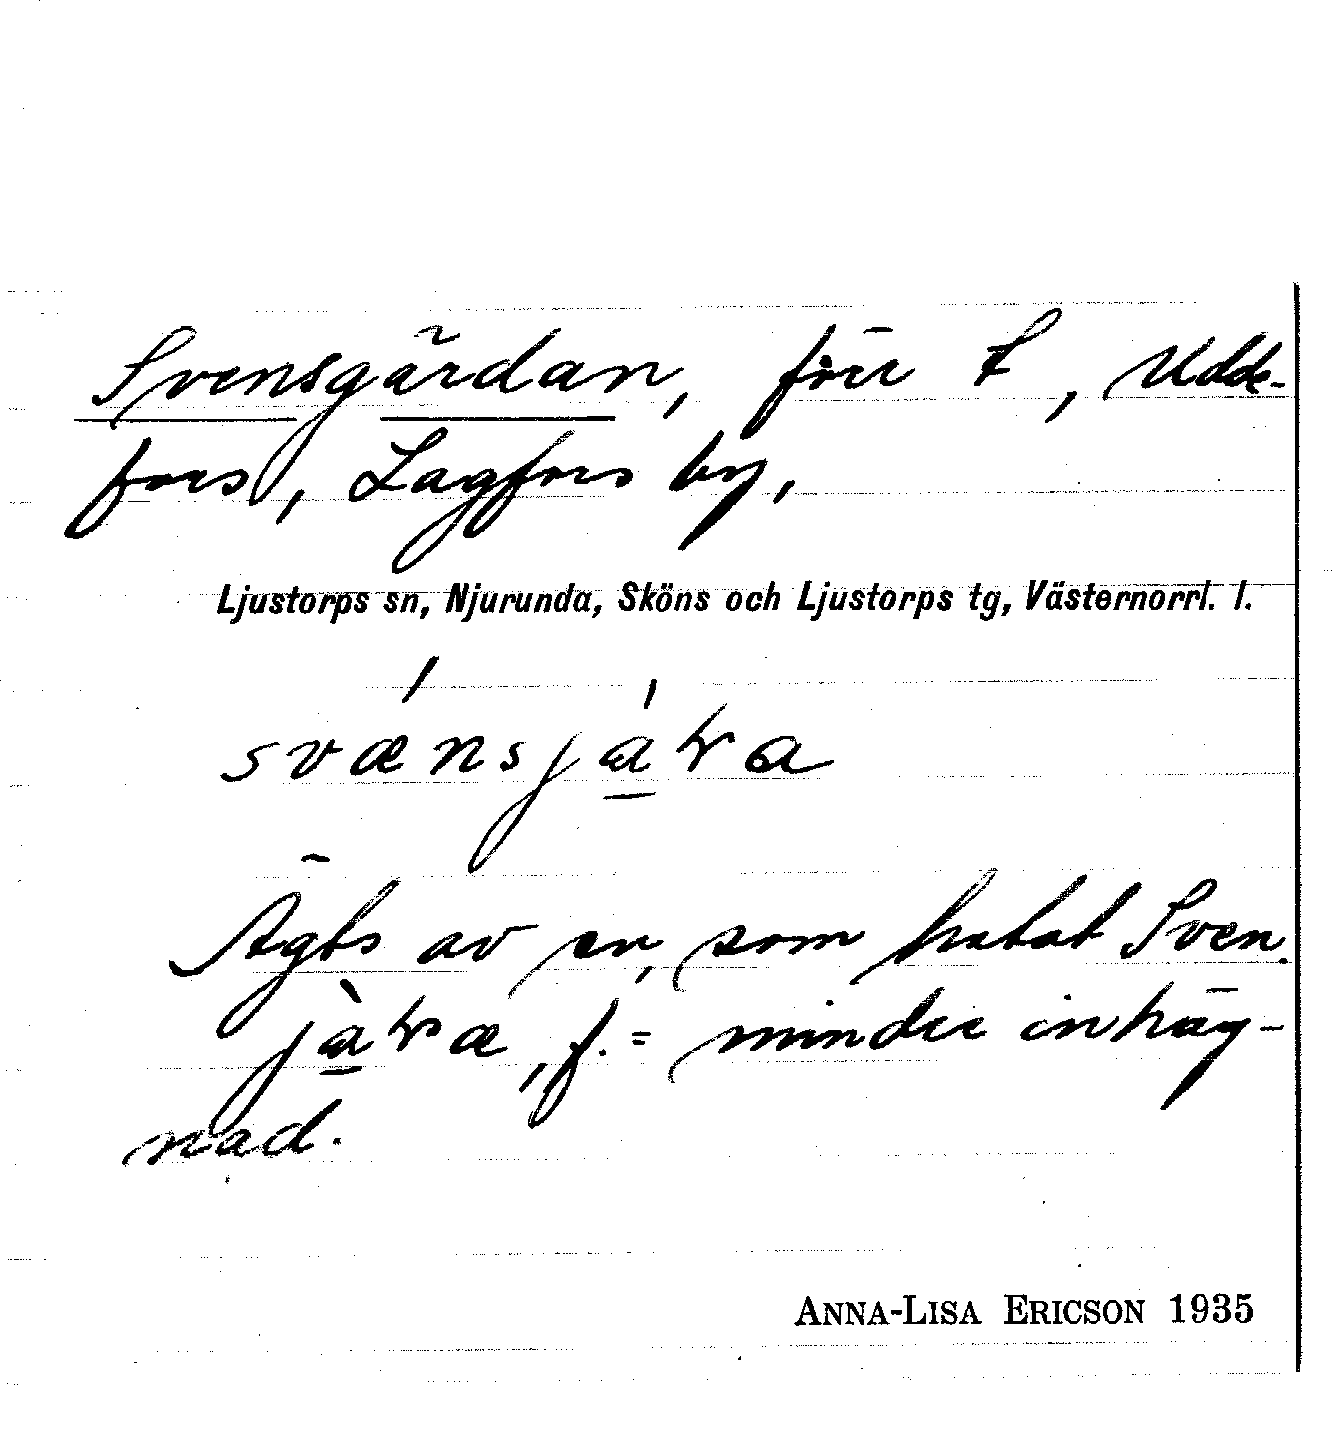 Svensgärdan, förr t, Udde-
fors, Lagfors by,
Ljustorps sn, Njurunda, Sköns och Ljustorps tg, Västernorrl. l.
Ägts av en, som hetat Sven.
f. = mindre inhäg-
nad.
ANNA-LISA ERICSON 1935